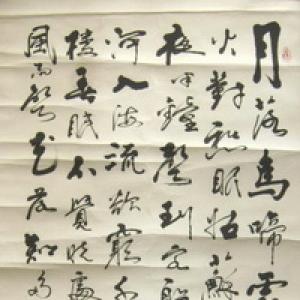 月落烏啼霜
火對愁眠姑蘇
夜半鐘聲到客船
河入海流欲窮千
樓春眠不覺曉處
風雨聲花落知多